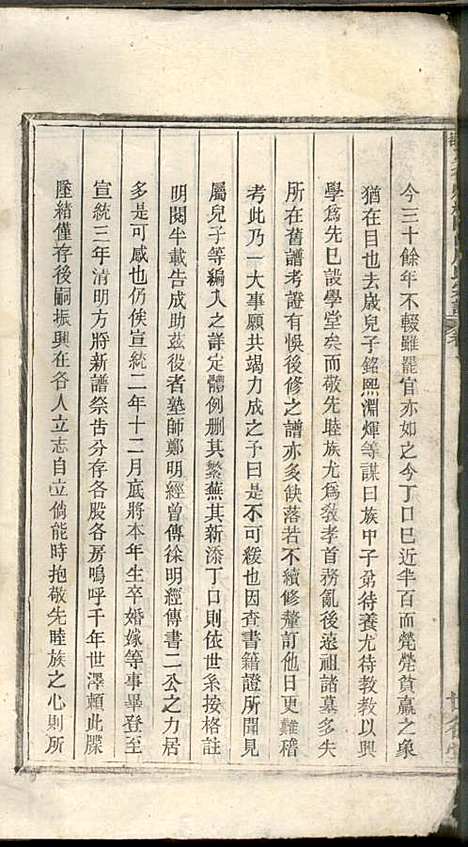 今三十餘年不輟雖罷官亦如之今丁口已近半百而煢煢貧羸之象
猶在目也去歲兒子銘熙淵煇等謀曰族中子弟待養尤待教教以興
學爲先已設學堂矣而敬先睦族尤爲敎孝首務亂後遠祖諸墓多失
所在舊譜考證有悞後修之譜亦多缺落若不續修釐訂他日更難稽
考此乃一大事願共竭力成之予曰是不可緩也因查書籍證所聞見
屬兒子等編入之詳定體例删其繁蕪其新添丁口則依世系按格註
明閱半載告成助茲役者塾師鄭明經曾傳徐明經傳書二公之力居
多是可感也仍俟宣統二年十二月底將本年生卒婚嫁等事畢登至
宣統三年清明方將新譜祭告分存各股各房嗚呼千年世澤賴此牒
墜緒僅存後嗣振興在各人立志自立倘能時抱敬先睦族之心則所